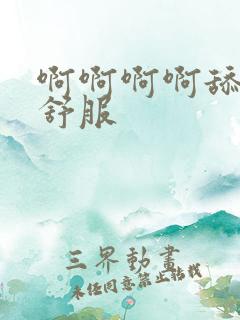 啊啊啊啊舔
舒服
三界動畫
未经同意禁止转载